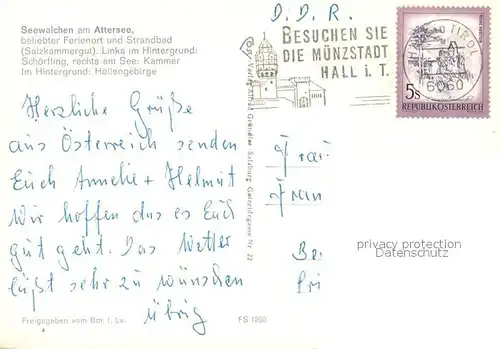 Seewalchen am Attersee,
beliebter Ferienort und Strandbad
(Salzkammergut). Links im Hintergrund:
Schörfling, rechts am See: Kammer
Im Hintergrund: Höllengebirge
D. D. R.
BESUCHEN SIE
DIE MÜNZSTADT
HALL i. T.
6060
5s
REPUBLIK ÖSTERREICH
Herzliche Grüße
aus Österreich senden
Euch Annelie + Helmut
Wir hoffen das es Euch
gut geht. Das Wetter
läßt sehr zu wünschen
übrig
Frau
Fran
Be
Pri
privacy protection
Datenschutz
Freigegeben vom Bm f. Lv.
FS 1260